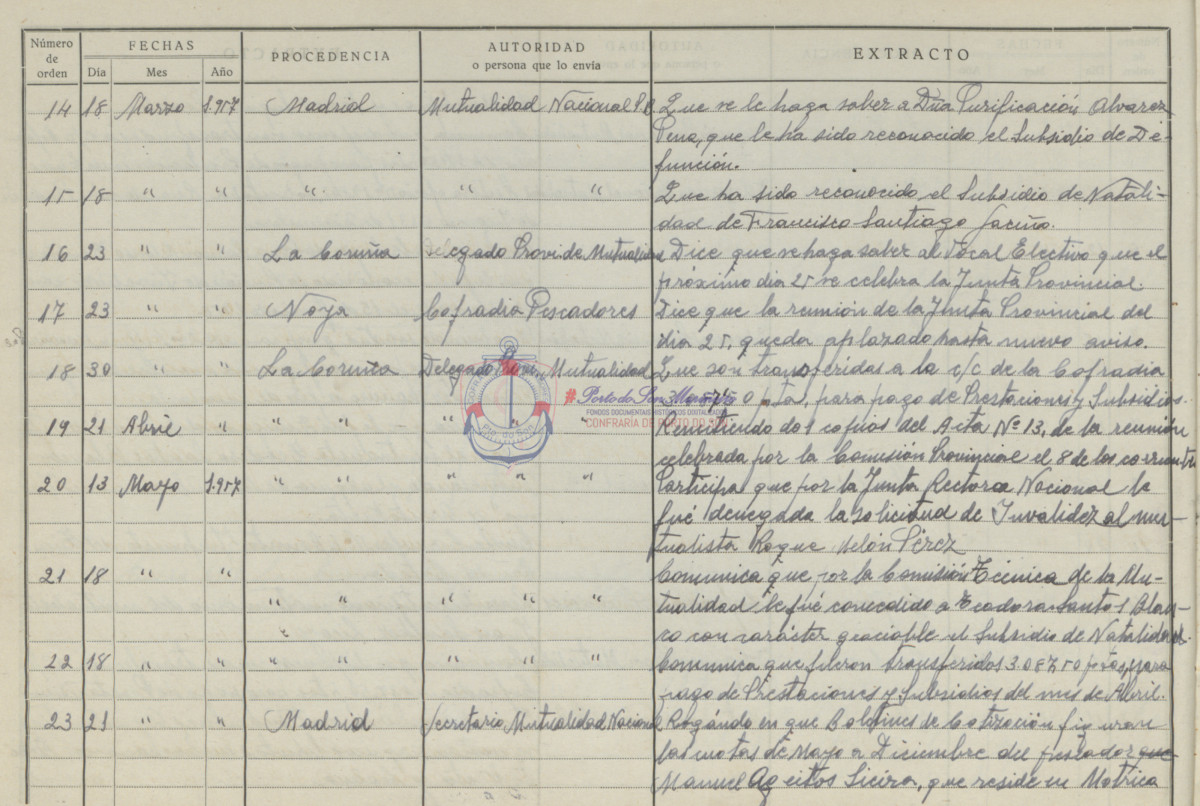 Número de orden FECHAS PROCEDENCIA AUTORIDAD o persona que lo envía EXTRACTO
Día Mes Año
14 18 Marzo 1.957 Madrid Mutualidad Nacional P.B. Que se le haga saber a Dña Purificación Alvarez
Pena, que le ha sido reconocido el Subsidio de De-
función.
15 18 " " " " " Que ha sido reconocido el Subsidio de Natali-
dad de Francisco Santiago
16 23 " " La Coruña Delegado Provi. de Mutualidad Dice que se haga saber al Vocal Electivo que el
próximo dia 25 se celebra la Junta Provincial
17 23 " " Noya Cofradia Pescadores Dice que la reunión de la Junta Provincial del
dia 25, queda aplazado hasta nuevo aviso.
18 30 " " La Coruña Delegado Mutualidad Que son transferidas a la c/c de la Cofradia
ptas, para pago de Prestaciones y Subsidios.
#PortodoSonMariñeiro
FONDOS DOCUMENTAIS HISTÓRICOS DIXITALIZADOS
CONFRARÍA DE PORTO DO SON
19 21 Abril " " " " " " Remitiendo dos copias del Acta Nº 13, de la reunión
celebrada por la Comisión Provincial el 8 de los corrientes
20 13 Mayo 1.957 " " " " " Participa que por la Junta Rectora Nacional le
fué denegada la solicitud de Invalidez al mu-
tualista Roque Pérez
21 18 " " Comunica que por la Comisión Técnica de la Mu-
" " " " " tualidad le fué concedido a Santos Blan-
co con carácter graciable el Subsidio de Natalidad.
22 18 " " " " " " " Comunica que fueron transferidos 3.087,50 ptas, para
pago de Prestaciones y Subsidios del mes de Abril.
23 21 " " Madrid Secretario Mutualidad Nacional Rogándo en que Boletines de Cotización figuran
las cuotas de Mayo a Diciembre del pescador que
Manuel Ageitos Sieira, que reside en Motrico